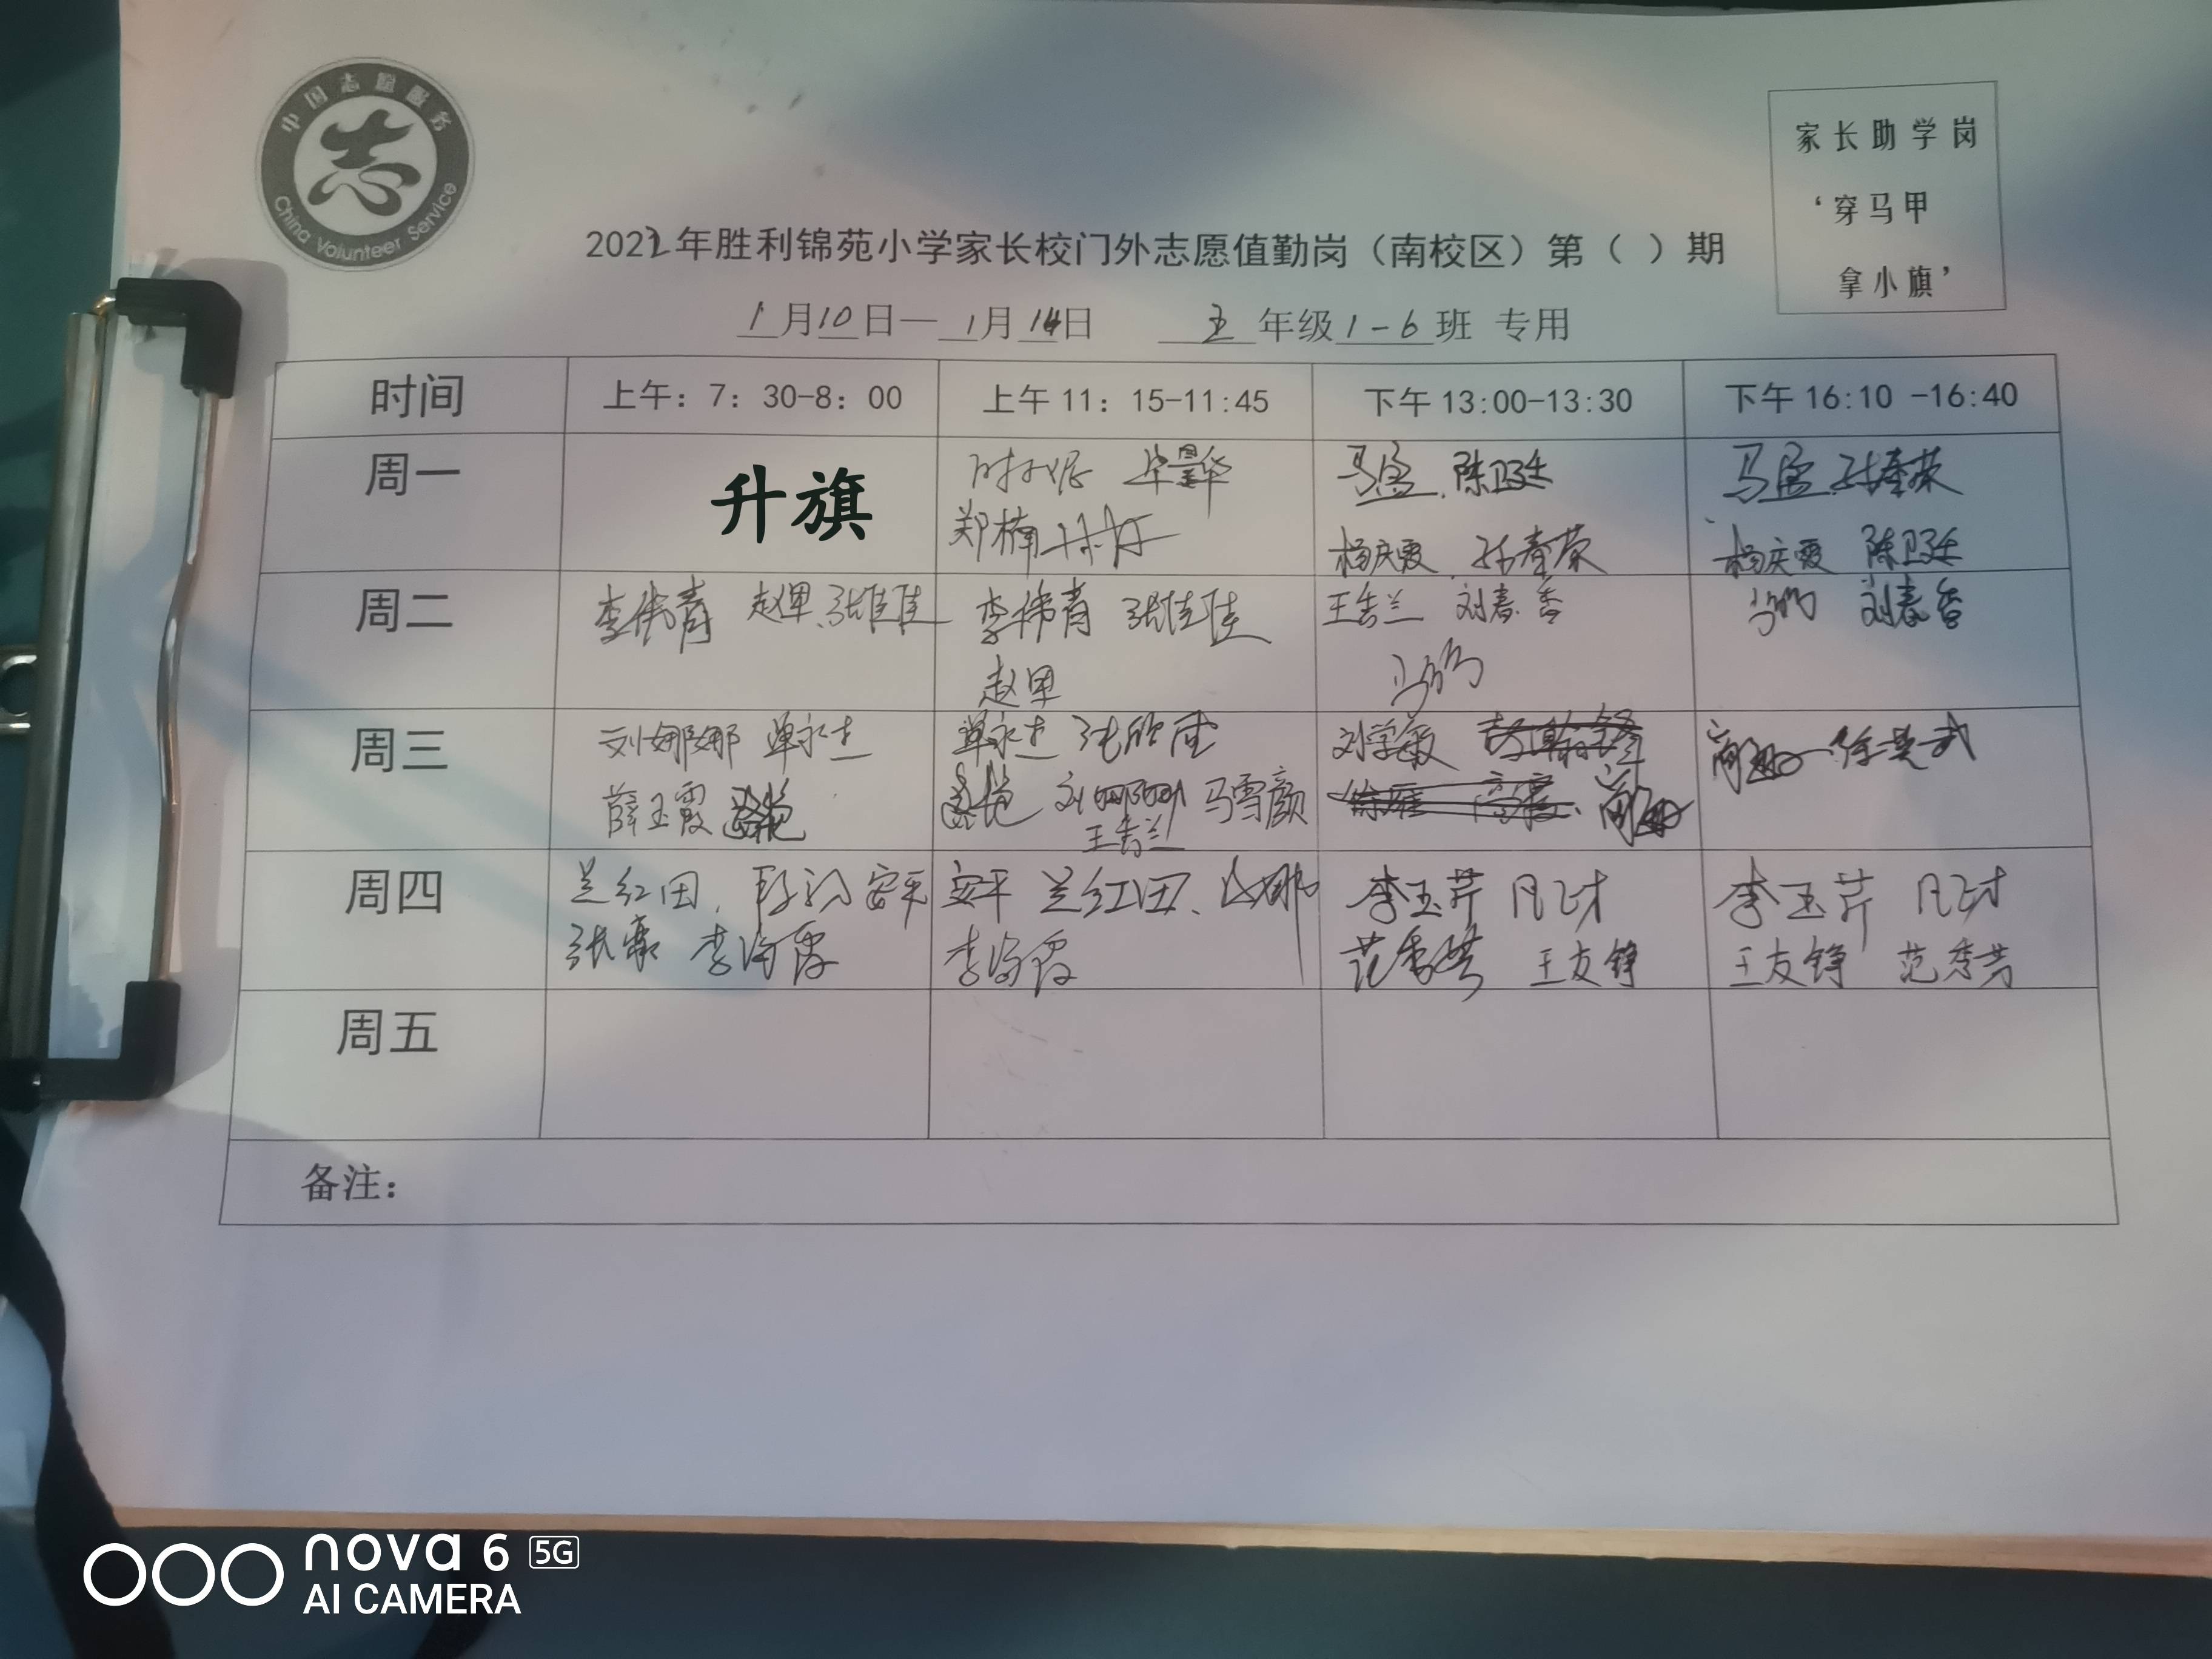 中国志愿服务
志
China Volunteer Service
家长助学岗
‘穿马甲
拿小旗’
2022年胜利锦苑小学家长校门外志愿值勤岗（南校区）第（ ）期
1月10日—1月14日 五年级1-6班 专用
时间 上午：7：30-8：00 上午11：15-11:45 下午13:00-13:30 下午16:10 -16:40
周一 升旗
郑楠
马孟 陈卫廷
杨庆霞 孙春荣
马孟 孙春荣
杨庆霞 陈卫廷
周二 李伟青 张佳佳
李伟青 张佳佳
王香兰 刘春香
刘春香
周三 刘娜娜 单永志
薛玉霞
单永志 张欣
刘娜娜 马雪颜
王香兰
刘学敏
徐英武
周四 兰红田 安平
李海霞
安平 兰红田
李海霞
李玉芹
范秀芳 王友铮
李玉芹
王友铮 范秀芳
周五
备注：
nova 6 5G
AI CAMERA